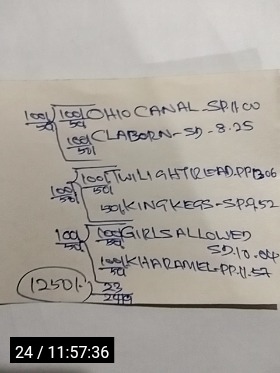 100/50 100/50 OHIO CANAL - SP.11.00
100/50 CLABORN - SD - 8.25
100/50 100/50 TWILIGHT READ.PP.13.06
50 KING KEGS - SP.9.52
100/50 100/50 GIRLS ALLOWED
SD.10.04
100/50 KHARAMEL.PP.11.57
23
1250/-
24 / 11:57:36